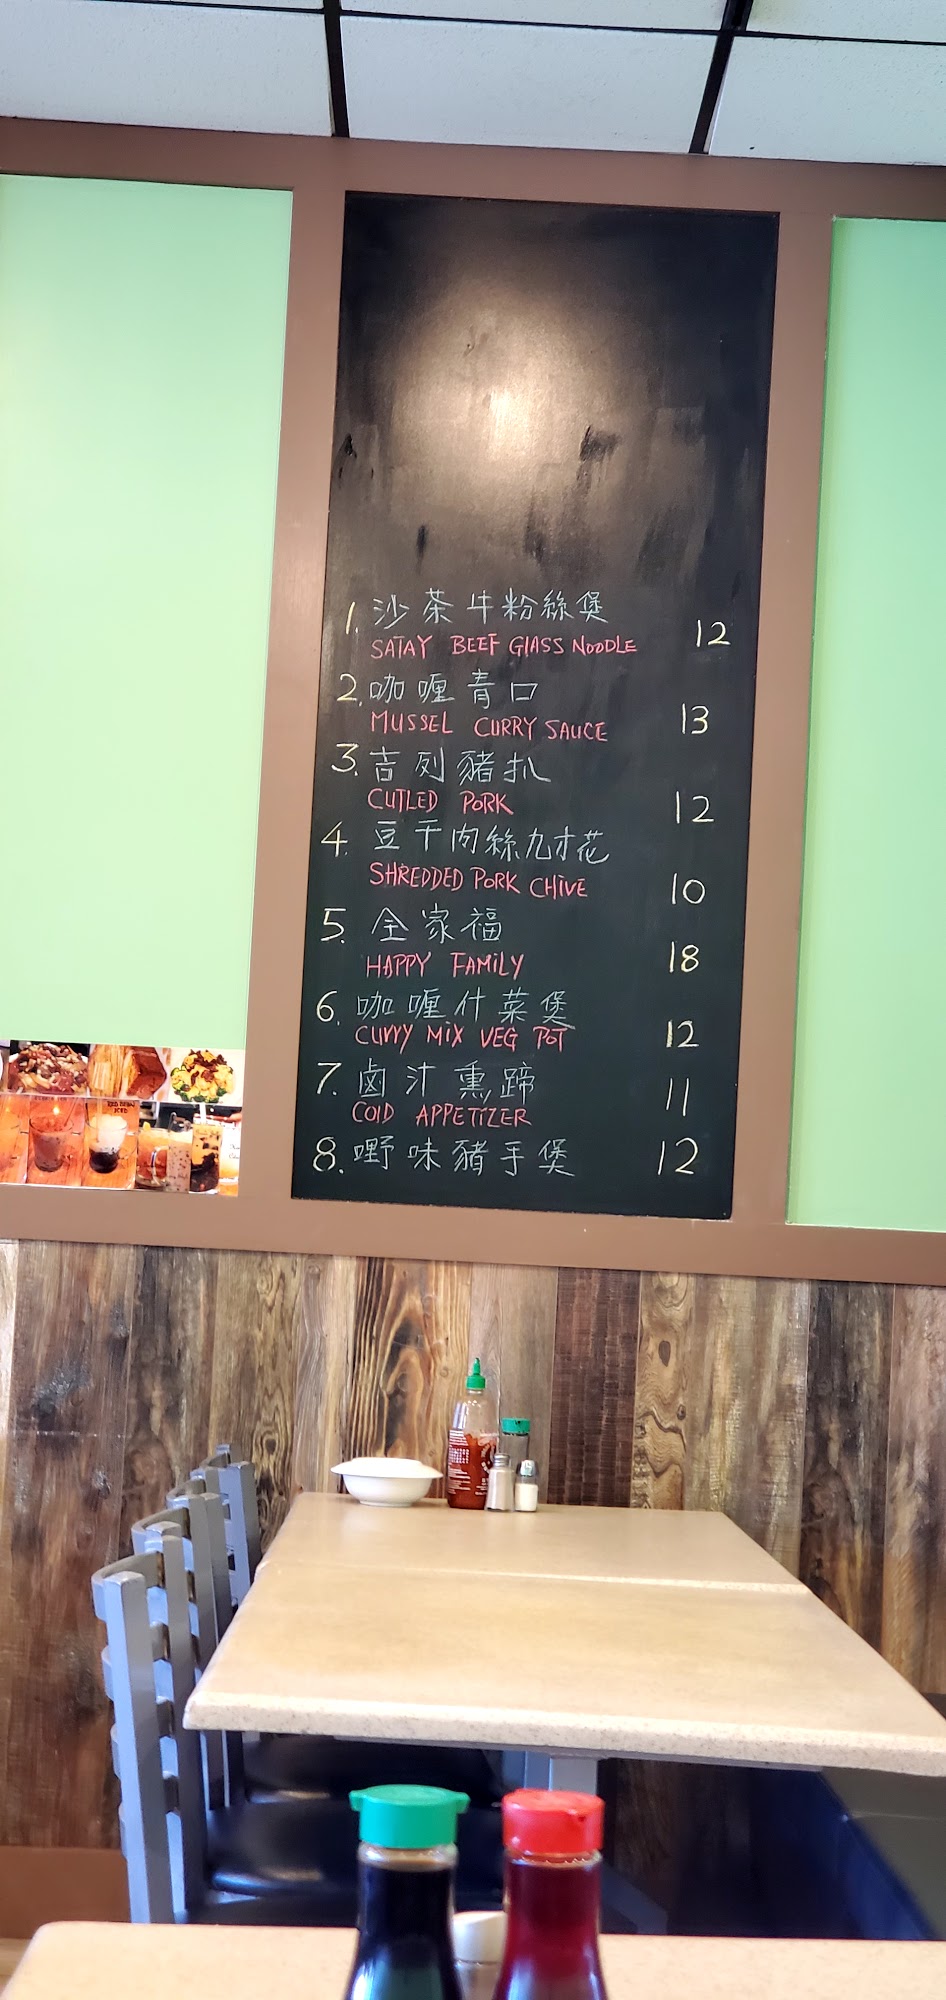 1. 沙茶牛粉絲煲
SATAY BEEF GLASS NOODLE 12
2. 咖喱青口
MUSSEL CURRY SAUCE 13
3. 吉列豬扒
CUTLED PORK 12
4. 豆干肉絲九才花
SHREDDED PORK CHIVE 10
5. 全家福
HAPPY FAMILY 18
6. 咖喱什菜煲
CURRY MIX VEG POT 12
7. 鹵汁熏蹄
COLD APPETIZER 11
8. 嘢味豬手煲 12
RED BEAN
ICED